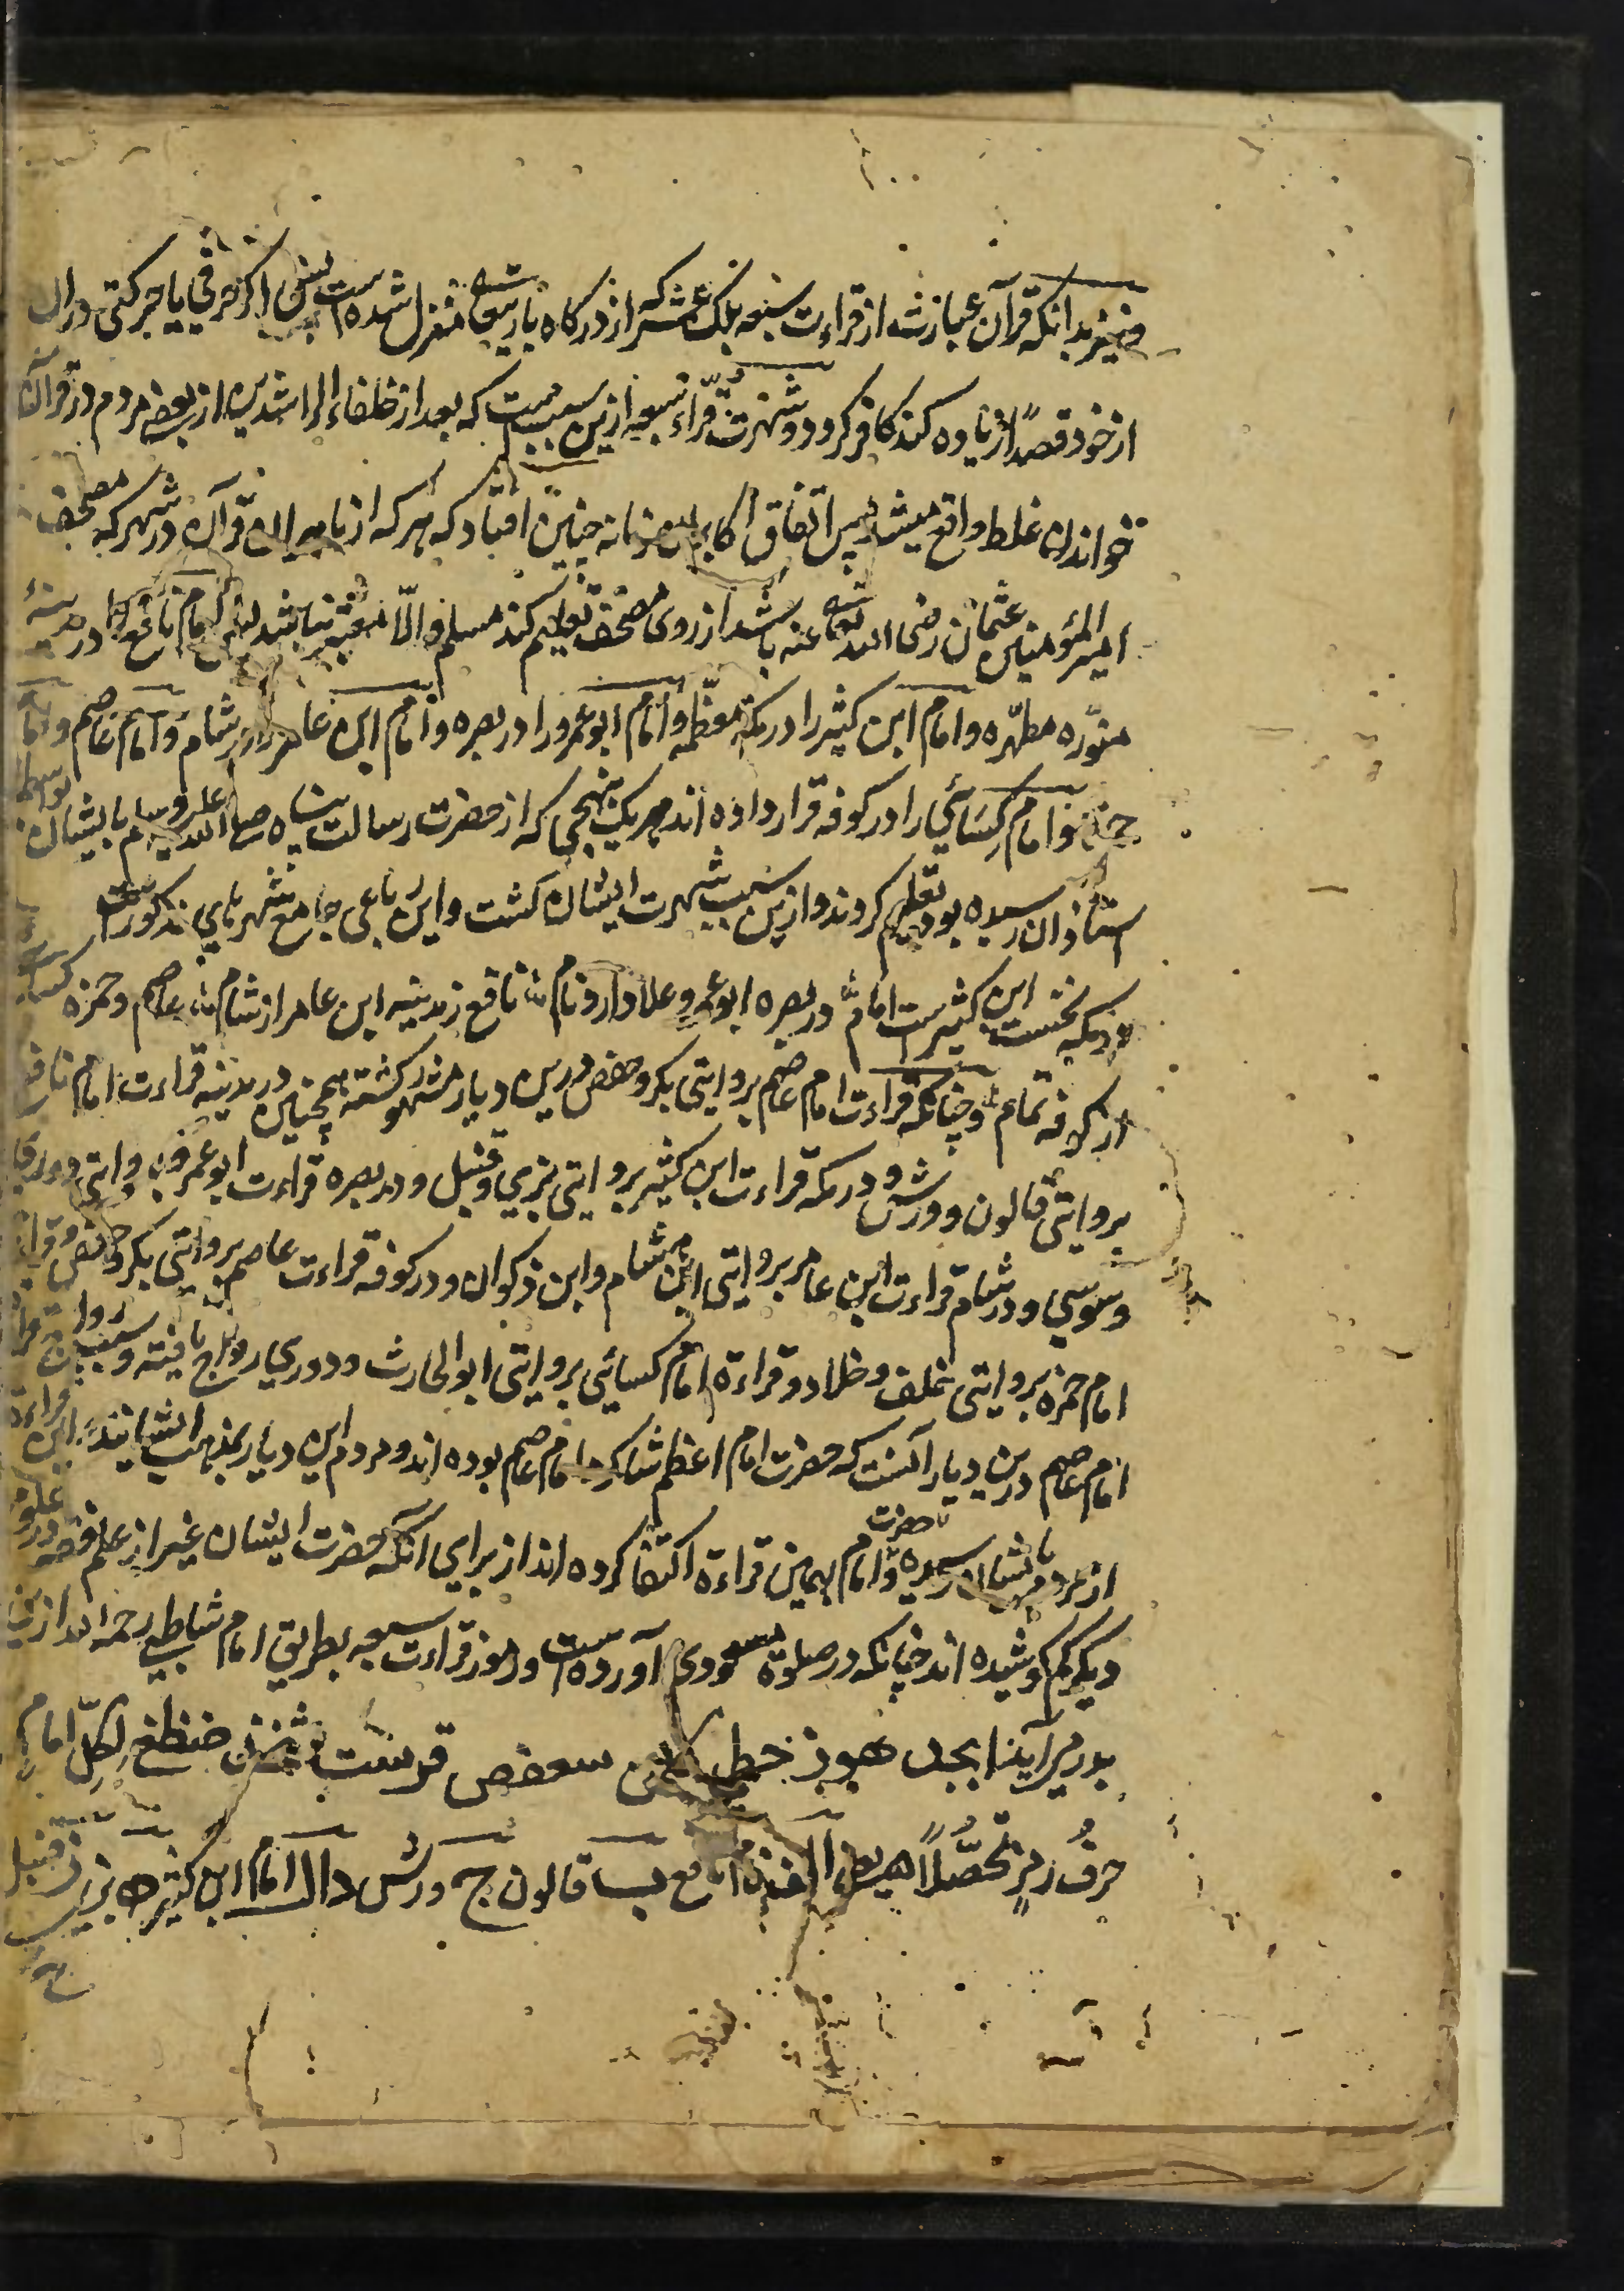 و نیز بدانکه قرآن عبارتست از قراءت سبعه بلک عشر که از درکاه باریتعالی منزل شده است پس اکر حرفی یا حرکتی در ان
از خود قصدًا زیاده کند کافر کردد و شهرت قرّاء سبعه ازین سببست که بعد از خلفاء الراشدین از بعضی مردم در قرآن
خواندن غلط واقع میشد پس اتفاق اکابر آن زمانه چنین افتاد که هر که از ماهران قرآن در شهر که مصحف
امیر المؤمنین عثمان رضی الله تعالی عنه باشد از روی مصحف تعلیم کند مسلم و الّا معتبر نباشد پس امام نافع را در مدینهٔ
منوّره مطهّره و امام ابن کثیر را در مکهٔ معظّمه و امام ابو عمرو را در بصره و امام ابن عامر را در شام و امام عاصم و امام
حمزه و امام کِسَائي را در کوفه قرار داده اند هر یک بنهجی که از حضرت رسالت پناه صلی الله علیه وسلم بایشان بواسطهٔ
استاذان رسیده بود تعلیم کردند و ازین سبب شهرت ایشان کشت و این رباعی جامع شهرهای مذکورست
در مکه نخست ابن کثیرست امام در بصره ابو عمرو علا دارد نام نافع ز مدینه ابن عامر از شام عاصم و حمزه کسائی
از کوفه تمام و چنانکه قراءت امام عاصم بروایتی بکر و حفص درین دیار مشهور کشته همچنین در مدینه قراءت امام نافع
بروایتی قالون و ورش و در مکه قراءت ابن کثیر بروایتی بزي و قنبل و در بصره قراءت ابو عمرو بروایتی دوری
و سوسي و در شام قراءت ابن عامر بروایتی ابن هشام و ابن ذکوان و در کوفه قراءت عاصم بروایتی بکر و حفص و قراءت
امام حمزه بروایتی خلف و خلاد و قراءة امام کسائي بروایتی ابو الحارث و دوري رواج یافته و سبب رواج قراءة
امام عاصم درین دیار آنست که حضرت امام اعظم شاکرد امام عاصم بوده اند و مردم این دیار بمذهب ایشانند این قراءة
از مردم بایشان رسیده و حضرت امام بهمین قراءة اکتفا کرده اند از برای آنکه حضرت ایشان غیر از علم فقه در علوم
دیکر کم کوشیده اند چنانکه در صلوة مسعودی آورده است و رموز قراءت سبعه بطریق امام شاطبی رحمه الله ازین
ابجد هوز حطي کلمن سعفص قرست ثخذ ضظغ لِکلّ امامٍ
حرفُ رمزٍ تحصّلًا نافع ب قالون ج ورش دال امام ابن کثیر ه بزی ز قنبل